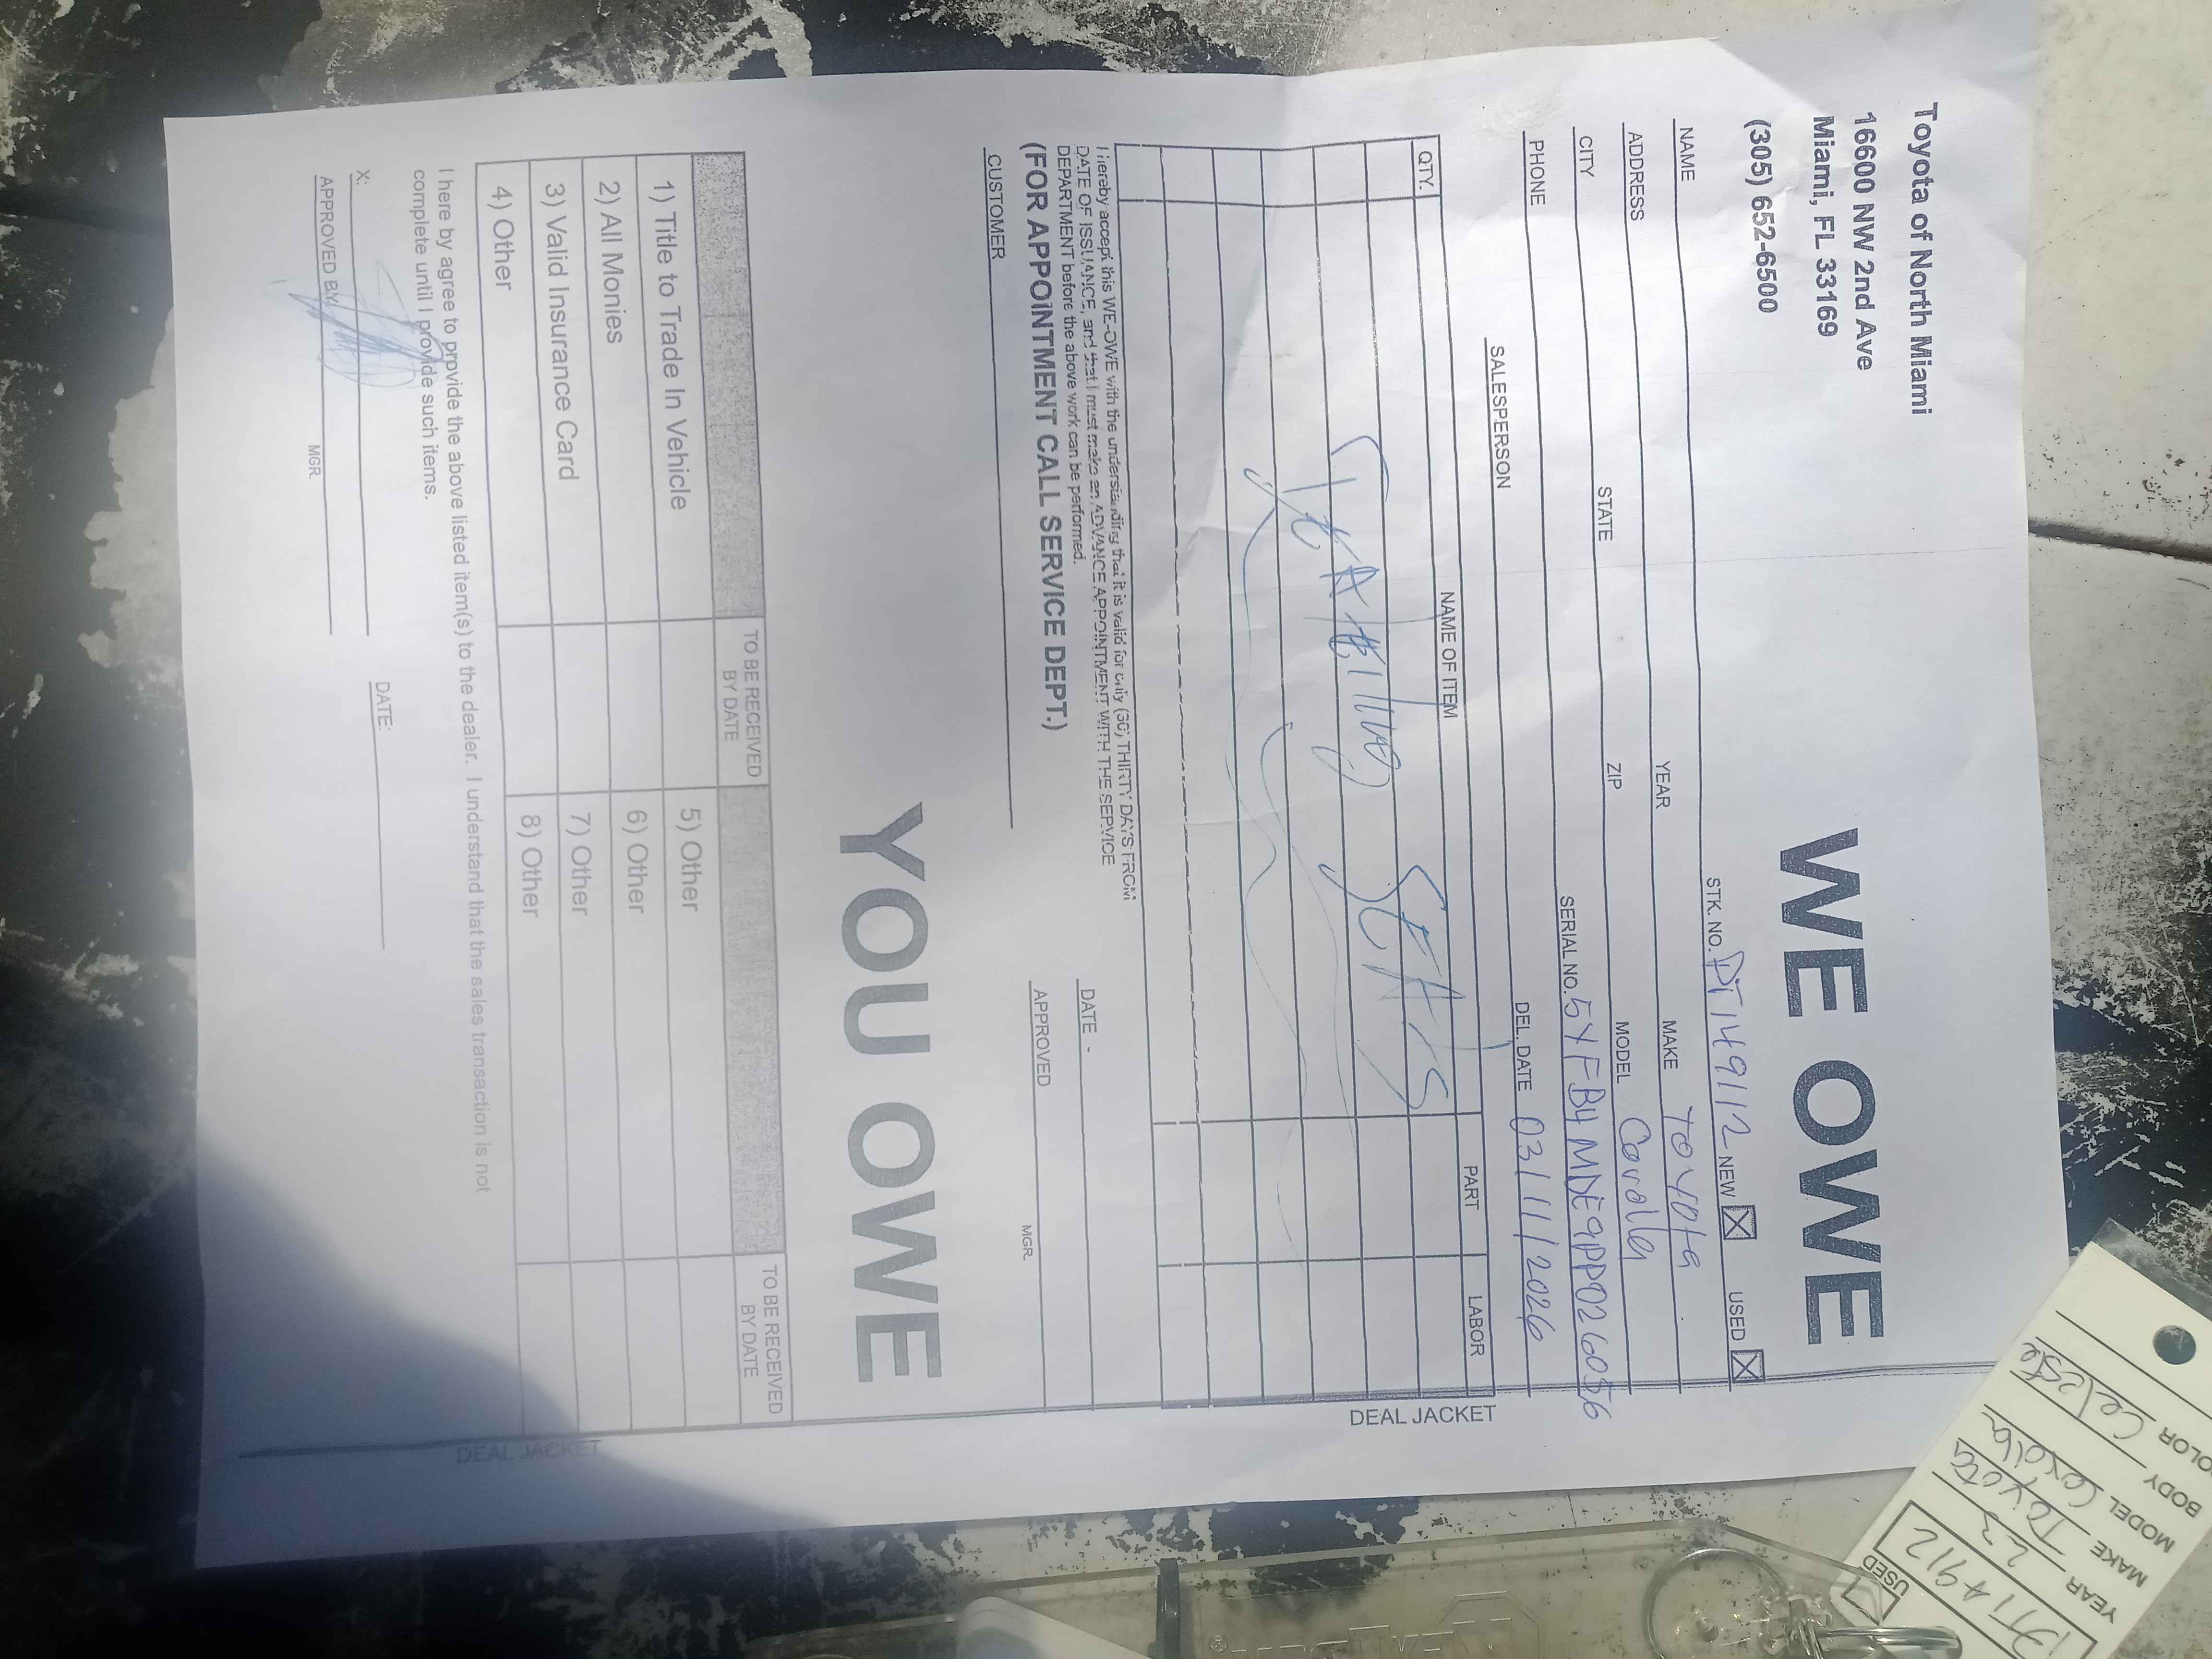 Toyota of North Miami
16600 NW 2nd Ave
Miami, FL 33169
(305) 652-6500
WE OWE
STK. NO. PT149112 NEW ☒ USED ☒
NAME YEAR MAKE Toyota
ADDRESS ZIP MODEL Corolla
CITY STATE SERIAL NO. 5YFB4MDE9PP026056
PHONE DEL. DATE 03/11/2026
SALESPERSON
QTY. NAME OF ITEM PART LABOR
SEATS
DEAL JACKET
I hereby accept this WE-OWE with the understanding that it is valid for only (30) THIRTY DAYS FROM
DATE OF ISSUANCE, and that I must make an ADVANCE APPOINTMENT WITH THE SERVICE
DEPARTMENT before the above work can be performed.
(FOR APPOINTMENT CALL SERVICE DEPT.)
DATE -
CUSTOMER APPROVED MGR.
YOU OWE
TO BE RECEIVED BY DATE TO BE RECEIVED BY DATE
1) Title to Trade In Vehicle 5) Other
2) All Monies 6) Other
3) Valid Insurance Card 7) Other
4) Other 8) Other
I here by agree to provide the above listed item(s) to the dealer. I understand that the sales transaction is not
complete until I provide such items.
DEAL JACKET
X: DATE:
APPROVED BY: MGR.
USED
YEAR 23
MAKE Toyota
MODEL Corolla
BODY
COLOR Celeste